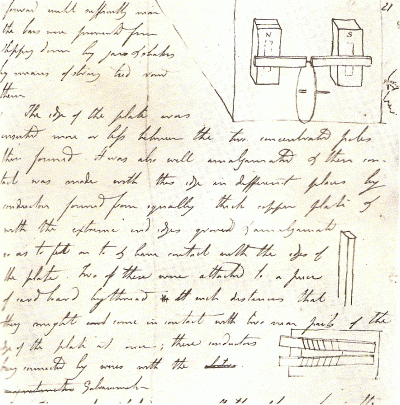 forward until sufficiently near
the bars were prevented from
slipping down by jars & shakes
by means of string tied round
them
21
N S
The edge of the plate was
inserted more or less between the two concentrated poles
thus formed. It was also well amalgamated & then con-
tact was made with this edge in different places by
conductors formed from equally thick copper plate &
with the extreme end edges grooved & amalgamated
so as to fit on to & have contact with the edges of
the plate. Two of these were attached to a piece
of card board by thread at such distances that
they might come in contact with two near parts of the
edge of the plate at once; these conductors
being connected by wires with the
Galvanometer